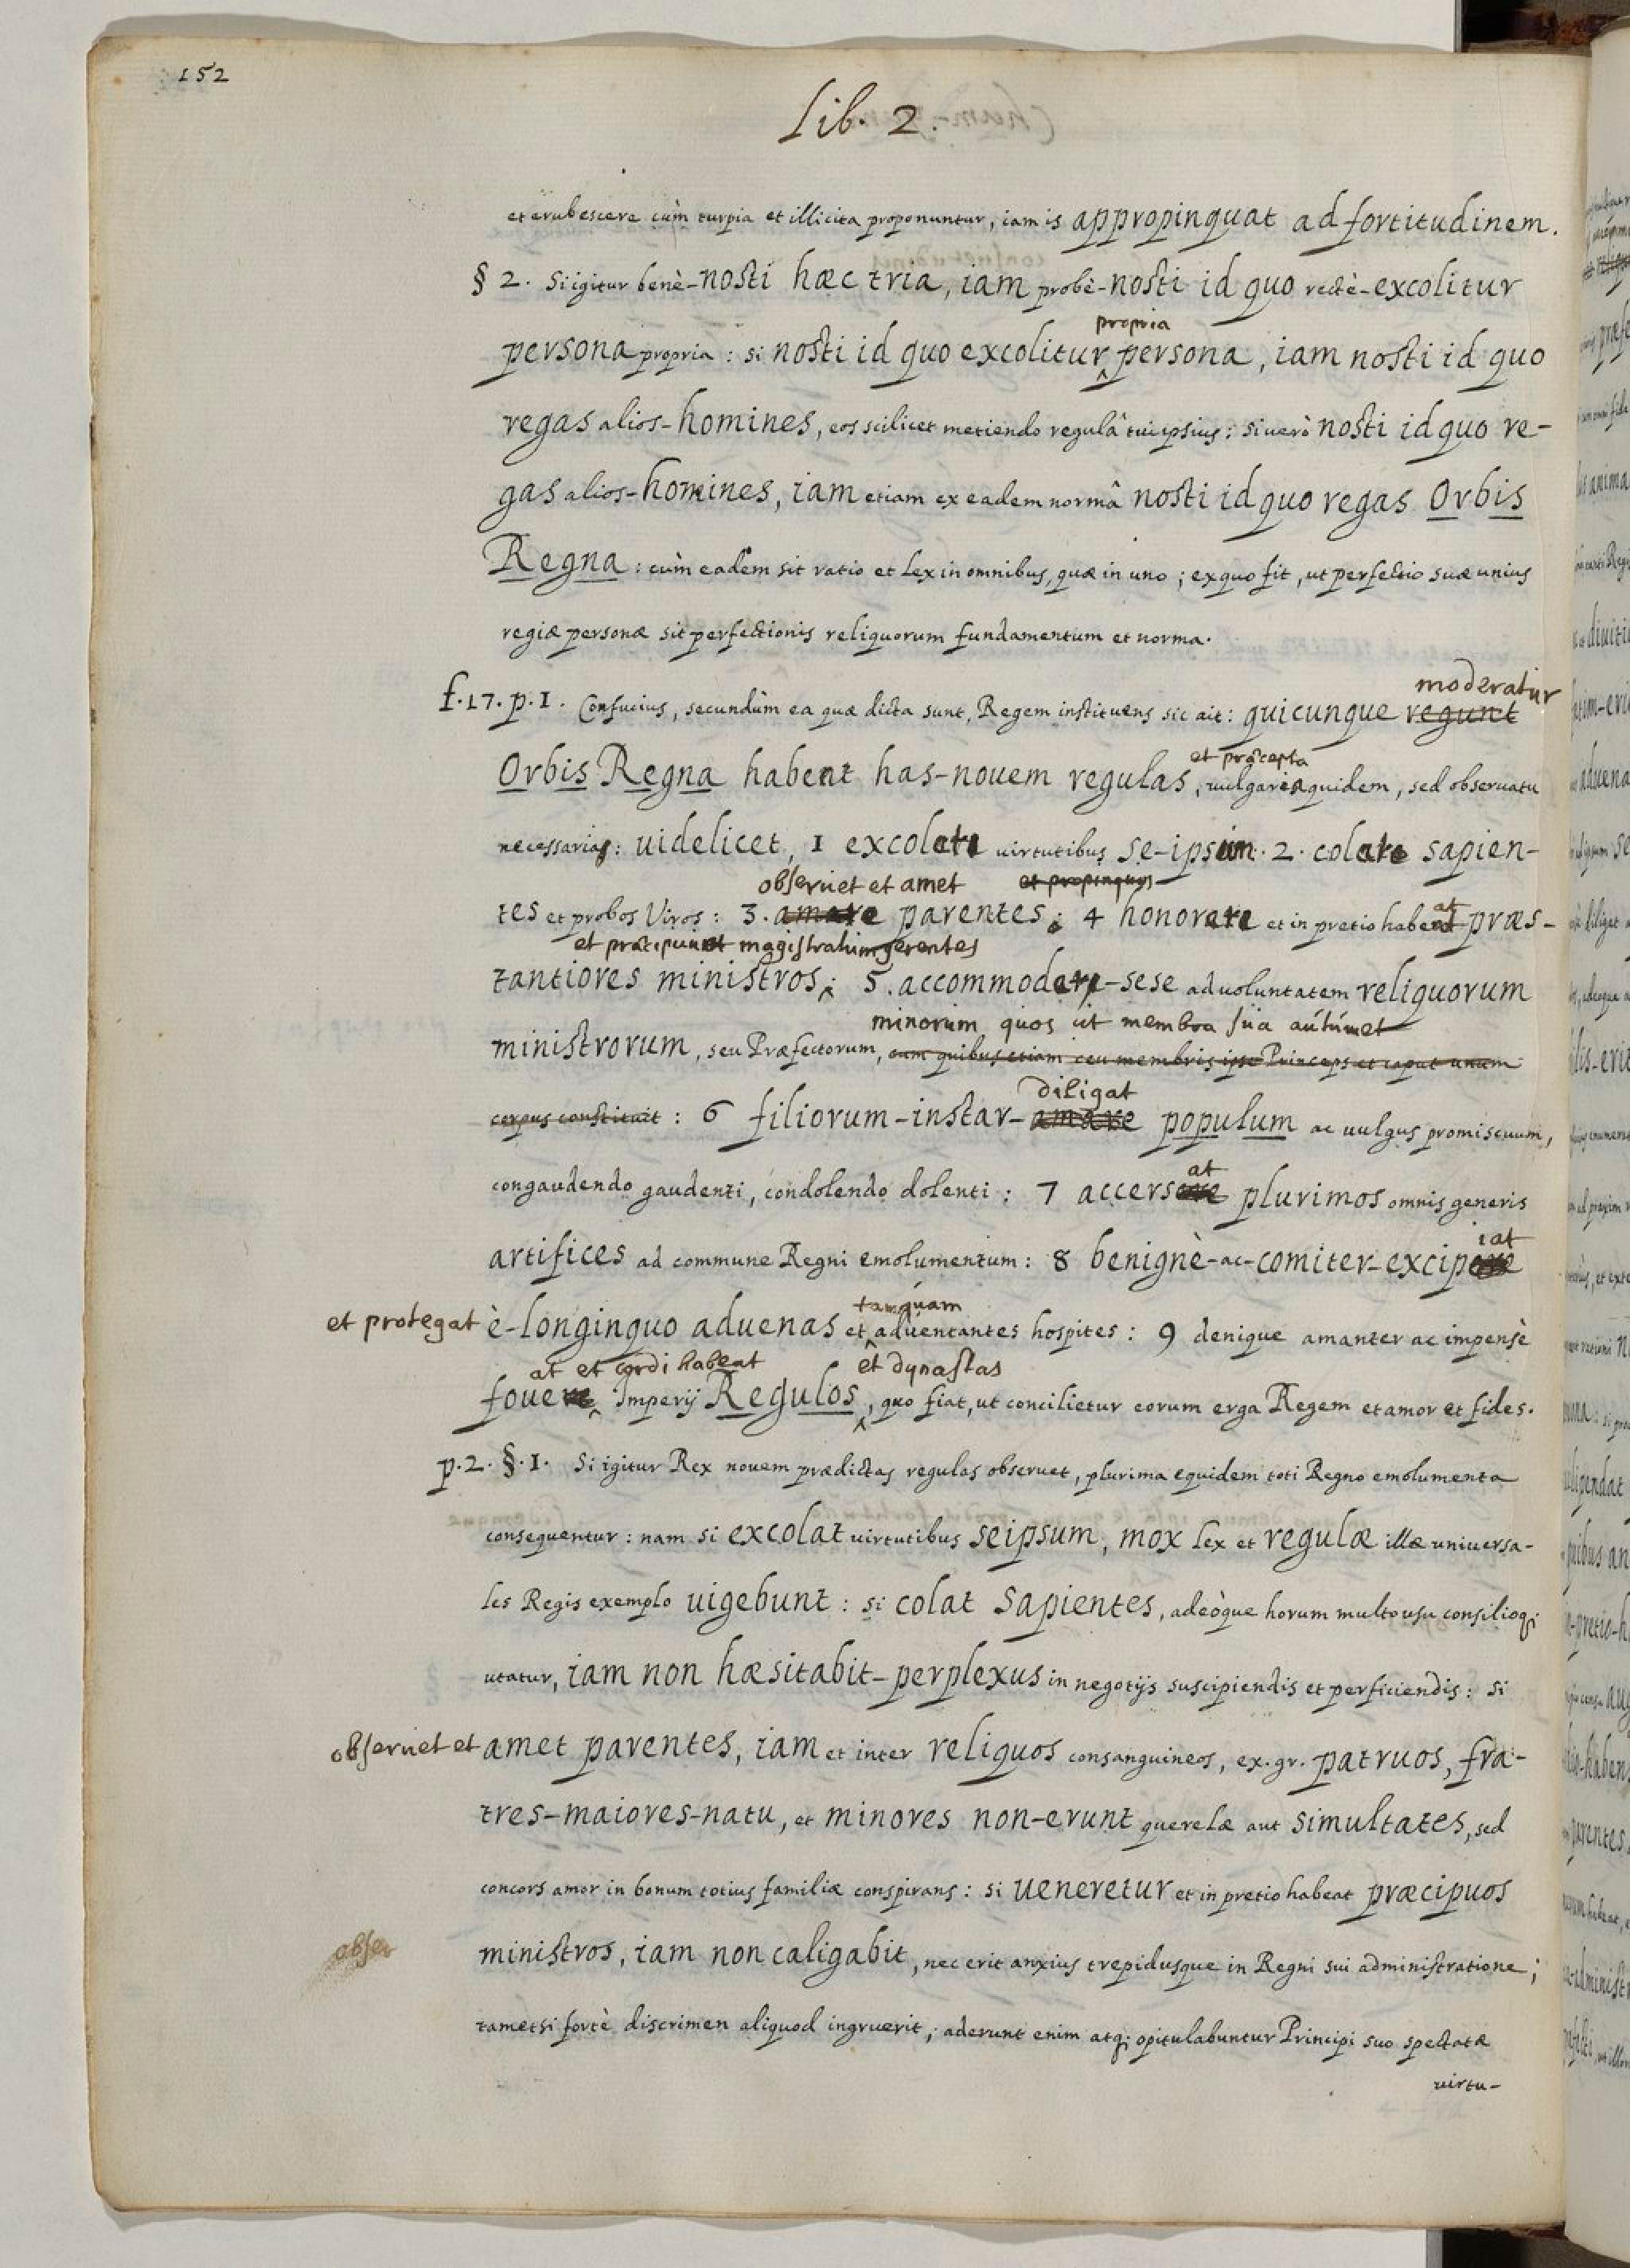 152
Lib. 2.
et erubescere cùm turpia et illicita proponuntur, iam is appropinquat ad fortitudinem.
§ 2. Si igitur benè-nosti hæc tria, iam probè-nosti id quo rectè-excolitur
propria
persona propria : si nosti id quo excolitur ^ persona, iam nosti id quo
regas alios-homines, eos scilicet metiendo regulâ tui ipsius : si uerò nosti id quo re-
gas alios-homines, iam etiam ex eadem normâ nosti id quo regas Orbis
Regna : cùm eadem sit ratio et Lex in omnibus, quæ in uno ; ex quo fit, ut perfectio suæ unius
regiæ personæ sit perfectionis reliquorum fundamentum et norma.
moderatur
f. 17. p. 1. Confucius, secundùm ea quæ dicta sunt, Regem instituens sic ait : quicunque regunt
et præcepta
Orbis Regna habent has-nouem regulas, uulgaria quidem, sed obseruatu
necessarias : uidelicet, 1 excolat uirtutibus se-ipsum. 2. colat sapien-
obseruet et amet et propinquos
tes et probos Viros : 3. amare parentes ; 4 honoret et in pretio habeat præs-
et præcipuum magistratum gerentes
tantiores ministros ; ^ 5. accommodet-sese ad uoluntatem reliquorum
minorum quos ut membra sua autumet
ministrorum, seu Præfectorum, cum quibus etiam ceu membris ipse Princeps et caput unum
diligat
corpus constituit : 6 filiorum-instar-amare populum ac uulgus promiscuum,
at
congaudendo gaudenti, condolendo dolenti : 7 accersere plurimos omnis generis
iat
artifices ad commune Regni emolumentum : 8 benignè-ac-comiter-excipere
tamquam
et protegat è-longinquo aduenas et ^ aduentantes hospites : 9 denique amanter ac impensè
at et cordi habeat et dynastas
fouere ^ Imperij Regulos ^, quo fiat, ut concilietur eorum erga Regem et amor et fides.
p. 2. §. 1. Si igitur Rex nouem prædictas regulas obseruet, plurima equidem toti Regno emolumenta
consequentur : nam si excolat uirtutibus seipsum, mox Lex et regulæ illæ uniuersa-
les Regis exemplo uigebunt : si colat sapientes, adeòque horum multo usu consilioq;
utatur, iam non hæsitabit-perplexus in negotijs suscipiendis et perficiendis : si
obseruet et amet parentes, iam et inter reliquos consanguineos, ex. gr. patruos, fra-
tres-maiores-natu, et minores non-erunt querelæ aut simultates, sed
concors amor in bonum totius familiæ conspirans : si ueneretur et in pretio habeat præcipuos
obser
ministros, iam non caligabit, nec erit anxius trepidusque in Regni sui administratione ;
tametsi fortè discrimen aliquod ingruerit ; aderunt enim atq; opitulabuntur Principi suo spectatæ
uirtu-